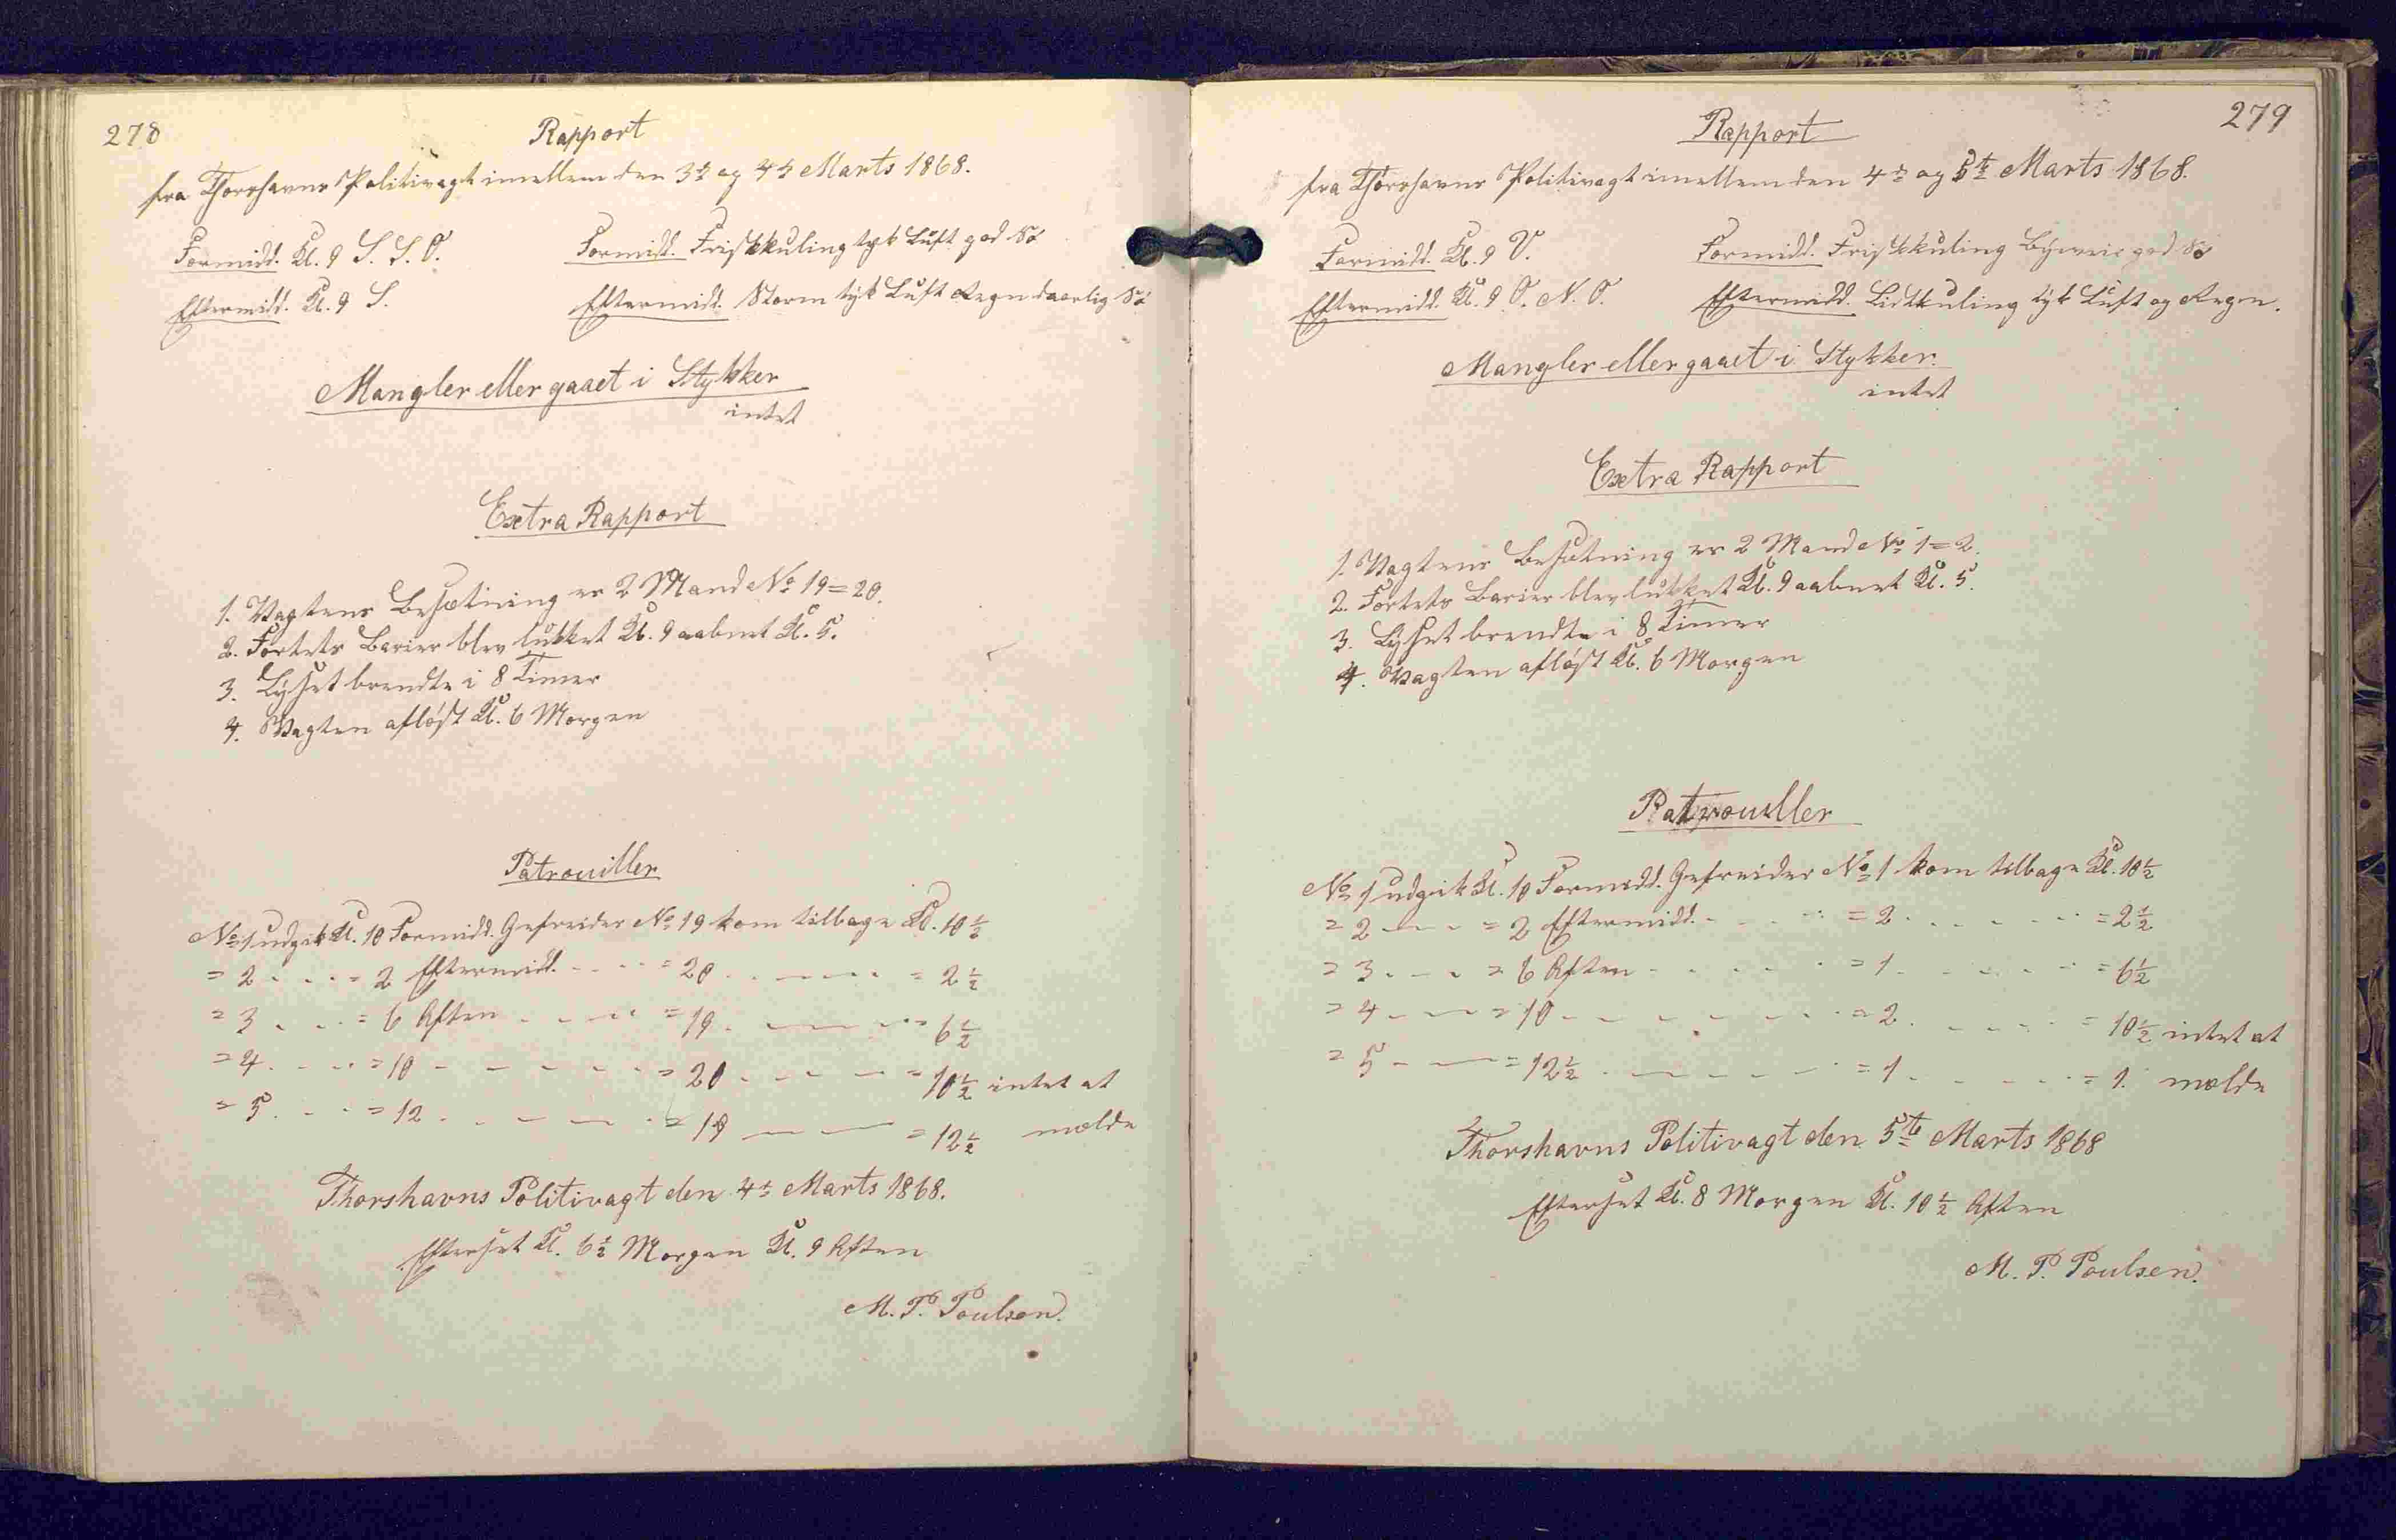 278
Rapport
fra Thorshavns Politivagt imellem den 3de og 4de Marts 1868.
Formidd. Kl. 9 S. S. O. Formidd. Friskkuling tyk Luft god Sø
Eftermidd. Kl. 9 S. Eftermidd. Storm tyk Luft Regn daarlig Sø
Mangler eller gaaet i Stykker
intet
Extra Rapport
1. Vagtens Besætning er 2 Mand No 19=20.
2. Fortets Barier blev lukket Kl. 9 aabnet Kl. 5.
3. Lyset brendte i 8 Timer
4. Vagten afløst Kl. 6 Morgen
Patrouiller
No 1 udgik Kl. 10 Formidd. Gefreider No 19 kom tilbage Kl. 10½
= 2 - - - = 2 Eftermidd. - - - = 20 - - - - = 2½
= 3 - - - = 6 Aften - - - - = 19 - - - - = 6½
= 4 - - - = 10 - - - - - = 20 - - - - = 10½ intet at
= 5 - - - = 12 - - - - - = 19 - - - = 12½ melde
Thorshavns Politivagt den 4de Marts 1868.
Efterset Kl. 6½ Morgen Kl. 9 Aften
M. P. Poulsen.
279
Rapport
fra Thorshavns Politivagt imellem den 4de og 5te Marts 1868.
Formidd. Kl. 9 V. Formidd. Friskkuling Byeveir god Sø
Eftermidd. Kl. 9 O. N. O. Eftermidd. Lidtkuling tyk Luft og Regn.
Mangler eller gaaet i Stykker.
intet
Extra Rapport
1. Vagtens Besætning er 2 Mand No 1=2.
2. Fortets Barier blev lukket Kl. 9 aabnet Kl. 5.
3. Lyset brendte i 8 Timer
4. Vagten afløst Kl. 6 Morgen
Patrouiller
No 1 udgik Kl. 10 Formidd. Gefreider No 1 kom tilbage Kl. 10½
= 2 - - - = 2 Eftermidd. - - - = 2 - - - - = 2½
= 3 - - - = 6 Aften - - - - = 1 - - - - = 6½
= 4 - - - = 10 - - - - - = 2 - - - - = 10½ intet at
= 5 - - - = 12½ - - - - = 1 - - - - = 1. melde
Thorshavns Politivagt den 5te Marts 1868
Efterset Kl. 8 Morgen Kl. 10½ Aften
M. P. Poulsen.